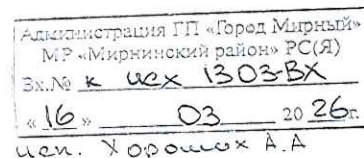 Администрация ГП «Город Мирный»
МР «Мирнинский район» РС(Я)
Вх.№ к исх 1303-ВХ
« 16 » 03 20 26г.
исп. Хорошох А.А